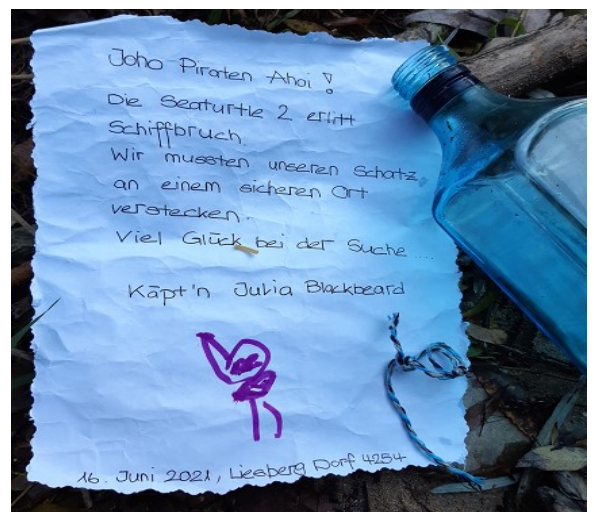 Joho Piraten Ahoi !
Die Seaturtle 2 erlitt
Schiffbruch.
Wir mussten unseren Schatz
an einem sicheren Ort
verstecken.
Viel Glück bei der Suche ....
Käpt'n Julia Blackbeard
16. Juni 2021, Liesberg Dorf 4254